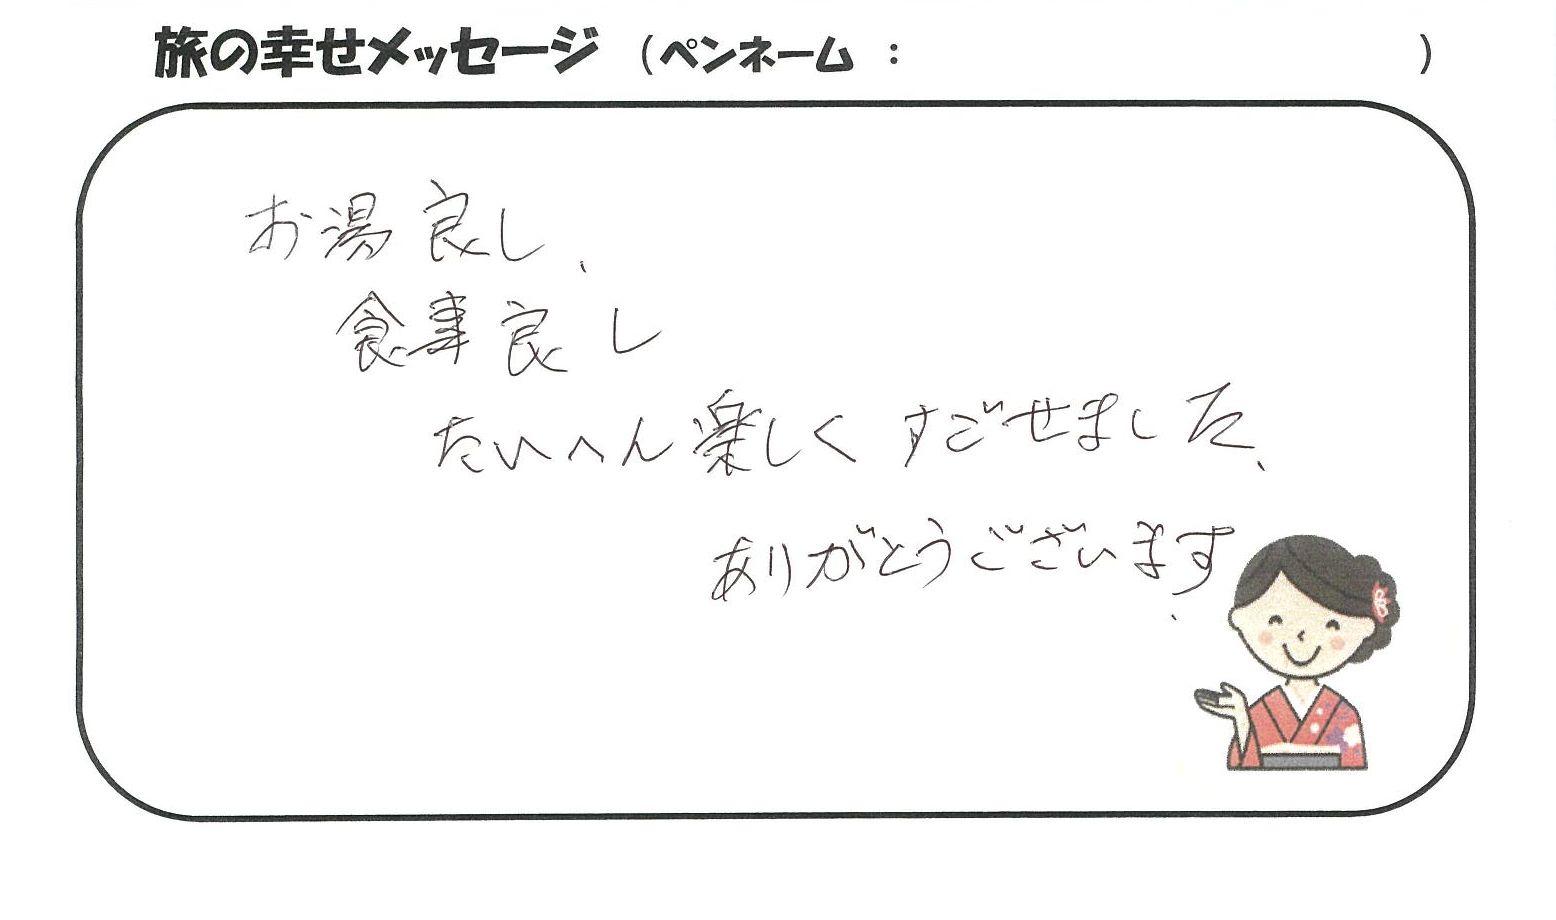 旅の幸せメッセージ（ペンネーム：　　　　　　　）
お湯良し、
食事良し
たいへん楽しくすごせました、
ありがとうございます、